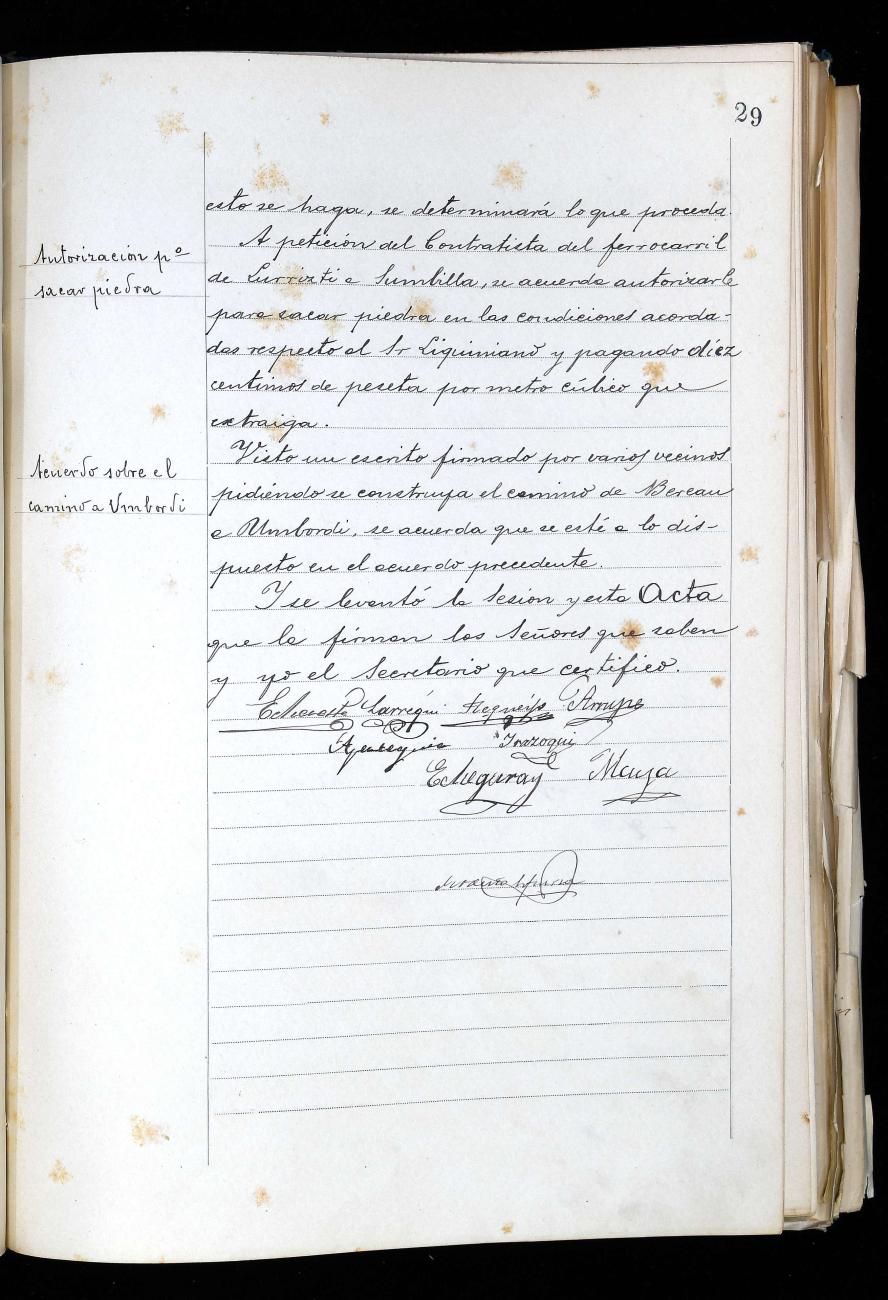 29
esto se haga, se determinará lo que proceda.
Autorización pº
sacar piedra
A petición del Contratista del ferrocarril
de Lurrizti a Sumbilla, se acuerda autorizarle
para sacar piedra en las condiciones acorda-
das respecto al Sr Liquiniano y pagando diez
centimos de peseta por metro cúbico que
extraiga.
Acuerdo sobre el
camino a Umbordi
Visto un escrito firmado por varios vecinos
pidiendo se construya el camino de Bereau
a Umbordi, se acuerda que se esté a lo dis-
puesto en el acuerdo precedente.
Y se levantó la Sesion y esta Acta
que la firman los Señores que saben
y yo el Secretario que certifico.
Larregui Arrupe
Irazoqui
Echeguray Maya